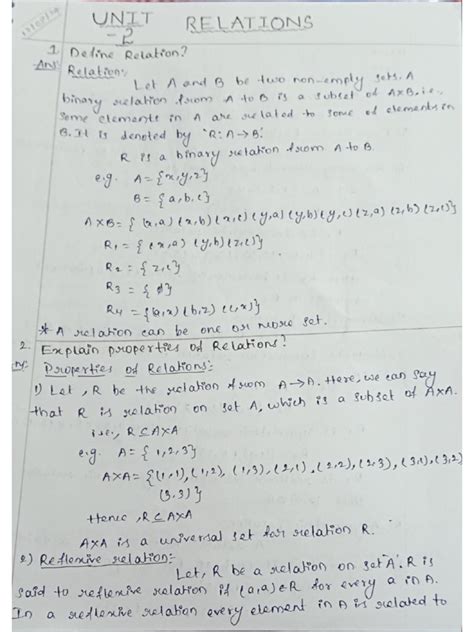 UNIT
-2
RELATIONS
1. Define Relation?
Ans: Relation:-
Let A and B be two non-empty sets. A
binary relation from A to B is a subset of A×B, i.e.,
some elements in A are related to some of elements in
B. It is denoted by 'R: A→B'.
R is a binary relation from A to B.
e.g. A = {x,y,z}
B = {a,b,c}
A×B = { (x,a) (x,b) (x,c) (y,a) (y,b) (y,c) (z,a) (z,b) (z,c)}
R1 = { (x,a) (y,b) (z,c)}
R2 = { z,c}
R3 = { ∅}
R4 = {(a,x) (b,z) (c,x)}
* A relation can be one or more set.
2. Explain properties of Relations?
Properties of Relations:-
1) Let, R be the relation from A→A. Here, we can say
that R is relation on set A, which is a subset of A×A.
i.e., R⊆A×A
e.g. A = { 1,2,3}
A×A = {(1,1), (1,2), (1,3), (2,1), (2,2), (2,3), (3,1), (3,2)
(3,3)}
Hence, R⊆A×A
A×A is a universal set for relation R.
2) Reflexive relation:-
Let, R be a relation on set 'A'. R is
said to reflexive relation if (a,a)∈R for every a in A.
In a reflexive relation every element in A is related to